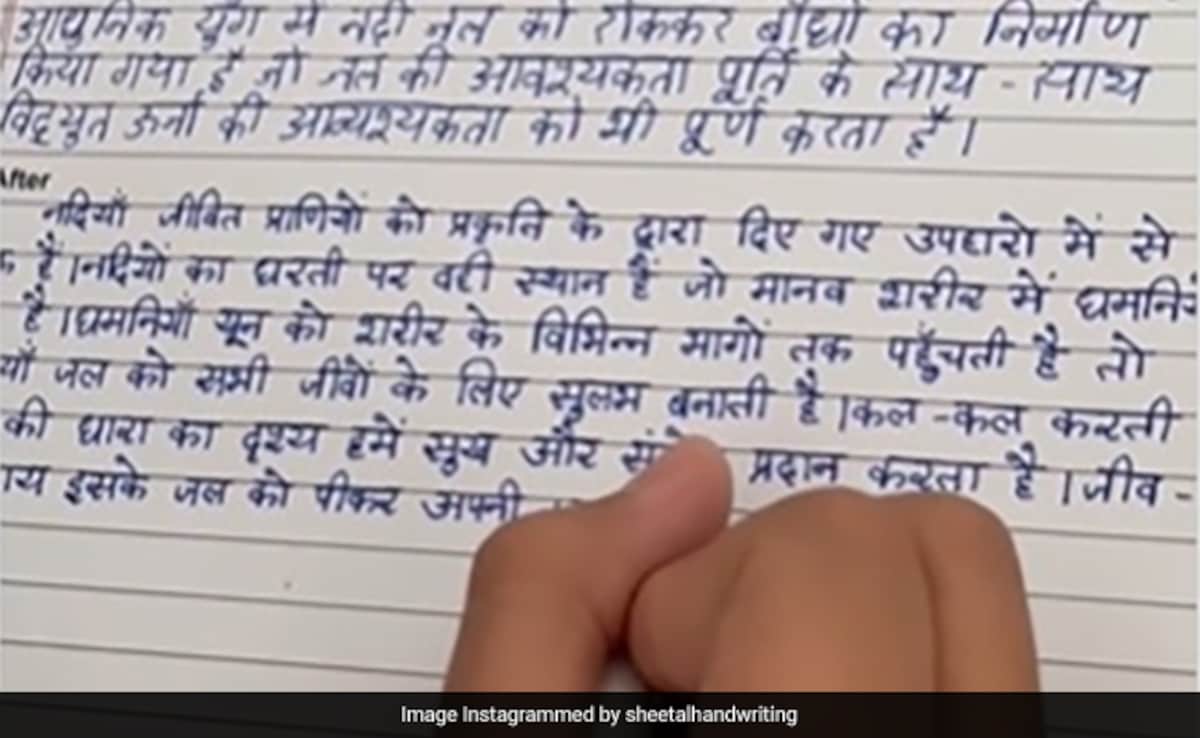 आधुनिक युग में नदी जल को रोककर बाँधों का निर्माण
किया गया है जो जल की आवश्यकता पूर्ति के साथ - साथ
विद्युत ऊर्जा की आव्यश्यकता को भी पूर्ण करता है।
After
नदियाँ जीवित प्राणियों को प्रकृति के द्वारा दिए गए उपहारो में से
क हैं।नदियों का धरती पर वही स्थान हैं जो मानव शरीर में धमनिय
है।धमनियाँ खून को शरीर के विभिन्न भागों तक पहुँचती है तो
याँ जल को सभी जीवों के लिए सुलभ बनाती है।कल -कल करती
की धारा का दृश्य हमें सुख और प्रदान करता है।जीव -
इसके जल को पीकर अपनी
Image Instagrammed by sheetalhandwriting